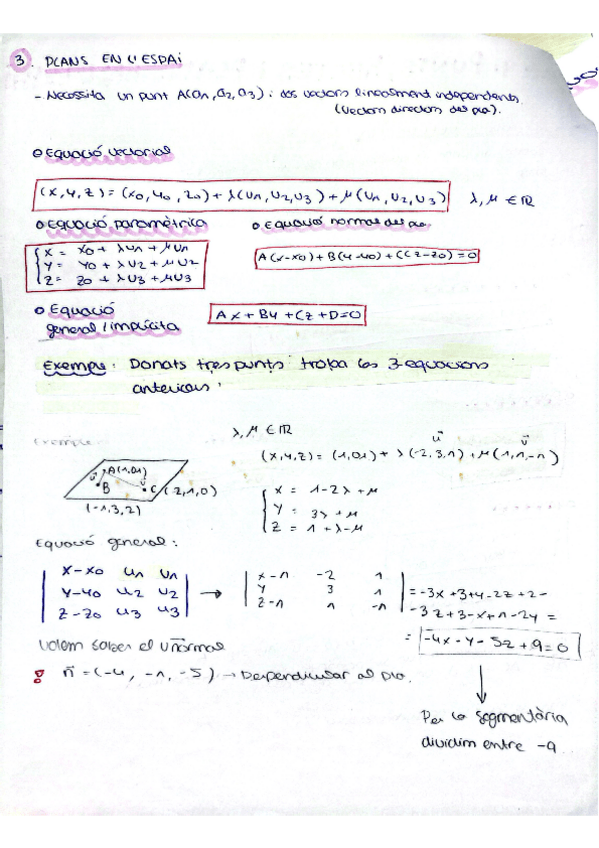 3. PLANS EN L'ESPAi
- Necessita un punt A(a1, a2, a3) i dos vectors linealment independents.
(vectors directors del pla).
Equació vectorial
(x, y, z) = (x0, y0, z0) + λ(u1, u2, u3) + μ(v1, v2, v3)   λ, μ ∈ ℝ
Equació paramètrica
x = x0 + λu1 + μv1
y = y0 + λu2 + μv2
z = z0 + λu3 + μv3
Equació normal del pla
A(x-x0) + B(y-y0) + C(z-z0) = 0
Equació
general / implícita
Ax + By + Cz + D = 0
Exemple: Donats tres punts troba les 3 equacions
anteriors:
Exemple
A(1,0,1)
u
v
B
C(2,1,0)
(-1,3,2)
λ, μ ∈ ℝ
u v
(x,y,z) = (1,0,1) + λ(-2,3,1) + μ(1,1,-1)
x = 1-2λ + μ
y = 3λ + μ
z = 1 + λ-μ
Equació general:
x-x0 u1 v1
y-y0 u2 v2
z-z0 u3 v3
→
x-1 -2 1
y 3 1
z-1 1 -1
= -3x+3+y-2z+2-
-3z+3-x+1-2y =
= -4x-y-5z+9=0
Volem saber el v normal
! n = (-4, -1, -5) → Perpendicular al pla.
Per la segmentària
dividim entre -9